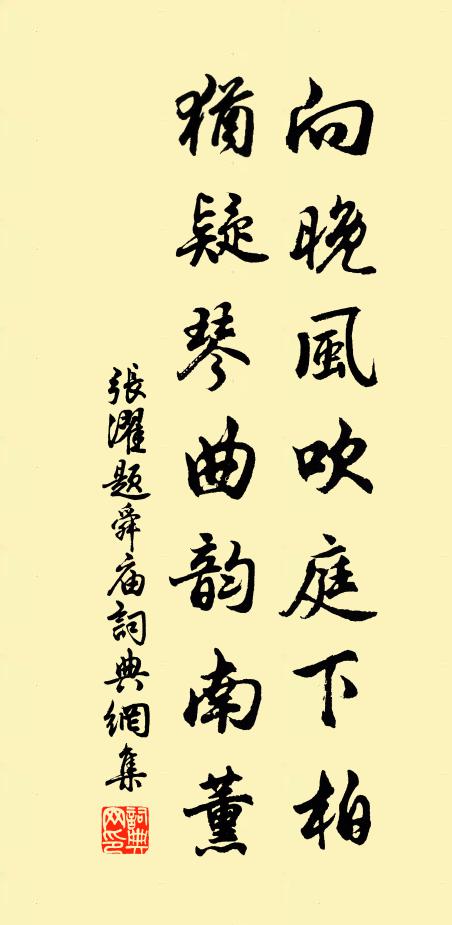 向晚風吹庭下柏
猶疑琴曲韵南薰
張濯題舜庙詞典網集
詞典網印